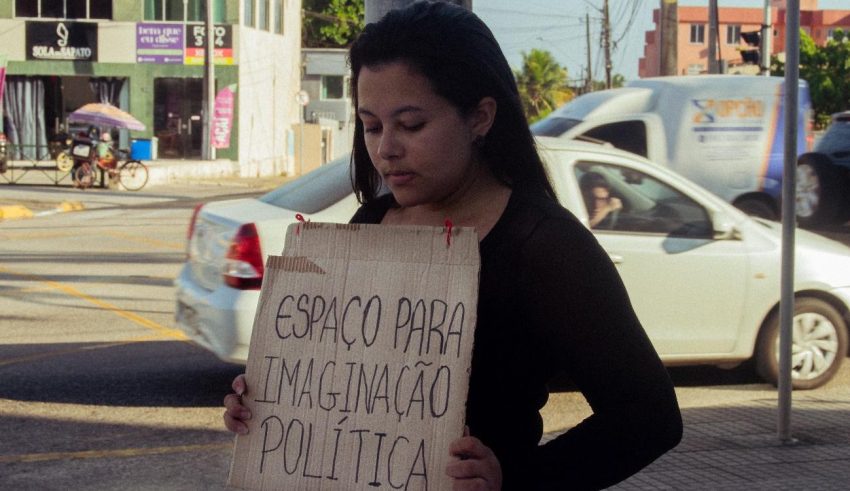 SOLA do SAPATO
que
eu disse
FOTO
3X4
OPÇÃO
ESPAÇO PARA
IMAGINAÇÃO
POLÍTICA